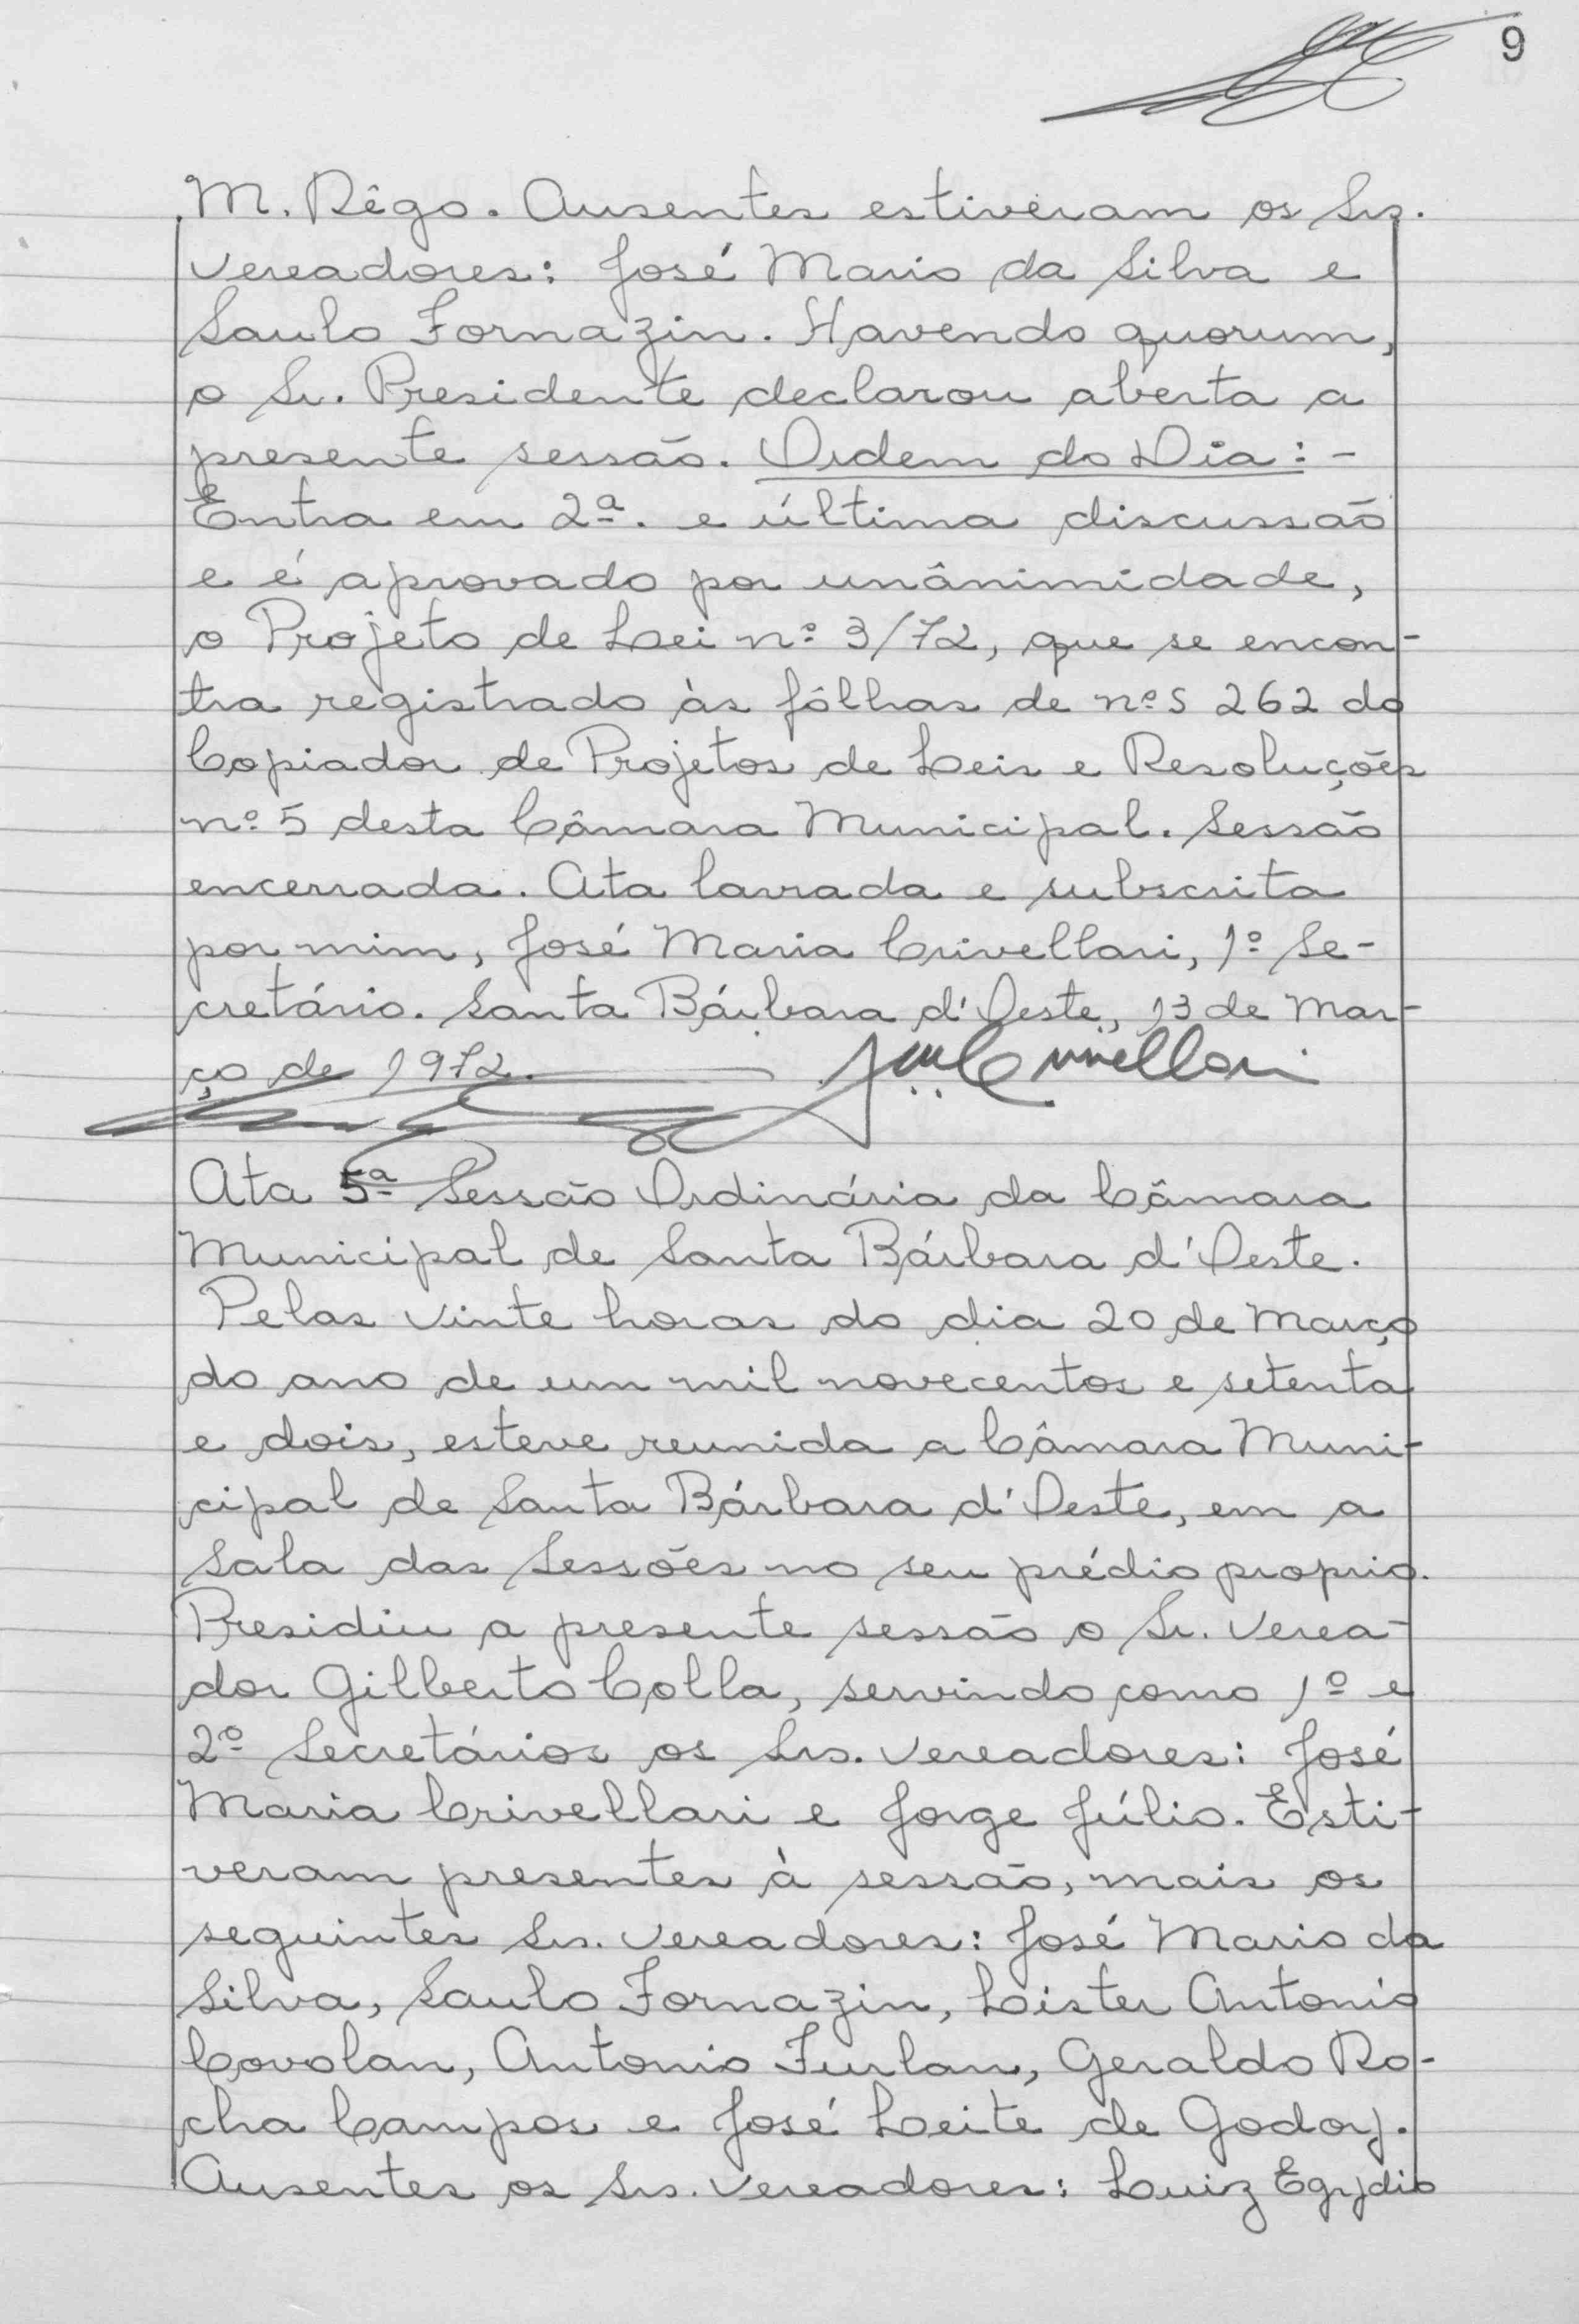 9
M. Rêgo. Ausentes estiveram os Srs.
Vereadores: José Mario da Silva e
Saulo Fornazin. Havendo quorum,
o Sr. Presidente declarou aberta a
presente sessão. Ordem do Dia: -
Entra em 2ª. e última discussão
e é aprovado por unânimidade,
o Projeto de Lei nº 3/72, que se encon-
tra registrado às fôlhas de nºs 262 do
Copiador de Projetos de Leis e Resoluções
nº 5 desta Câmara Municipal. Sessão
encerrada. Ata lavrada e subscrita
por mim, José Maria Crivellari, 1º Se-
cretário. Santa Bárbara d'Oeste, 13 de Mar-
ço de 1972.
Ata 5ª Sessão Ordinária da Câmara
Municipal de Santa Bárbara d'Oeste.
Pelas vinte horas do dia 20 de Março
do ano de um mil novecentos e setenta
e dois, esteve reunida a Câmara Muni-
cipal de Santa Bárbara d'Oeste, em a
Sala das Sessões no seu prédio proprio.
Presidiu a presente sessão o Sr. Verea-
dor Gilberto Colla, servindo como 1º e
2º Secretários os Srs. Vereadores: José
Maria Crivellari e Jorge Júlio. Esti-
veram presentes à sessão, mais os
seguintes Srs. Vereadores: José Mario da
Silva, Saulo Fornazin, Lister Antonio
Covolan, Antonio Furlan, Geraldo Ro-
cha Campos e José Leite de Godoy.
Ausentes os Srs. Vereadores: Luiz Egydio